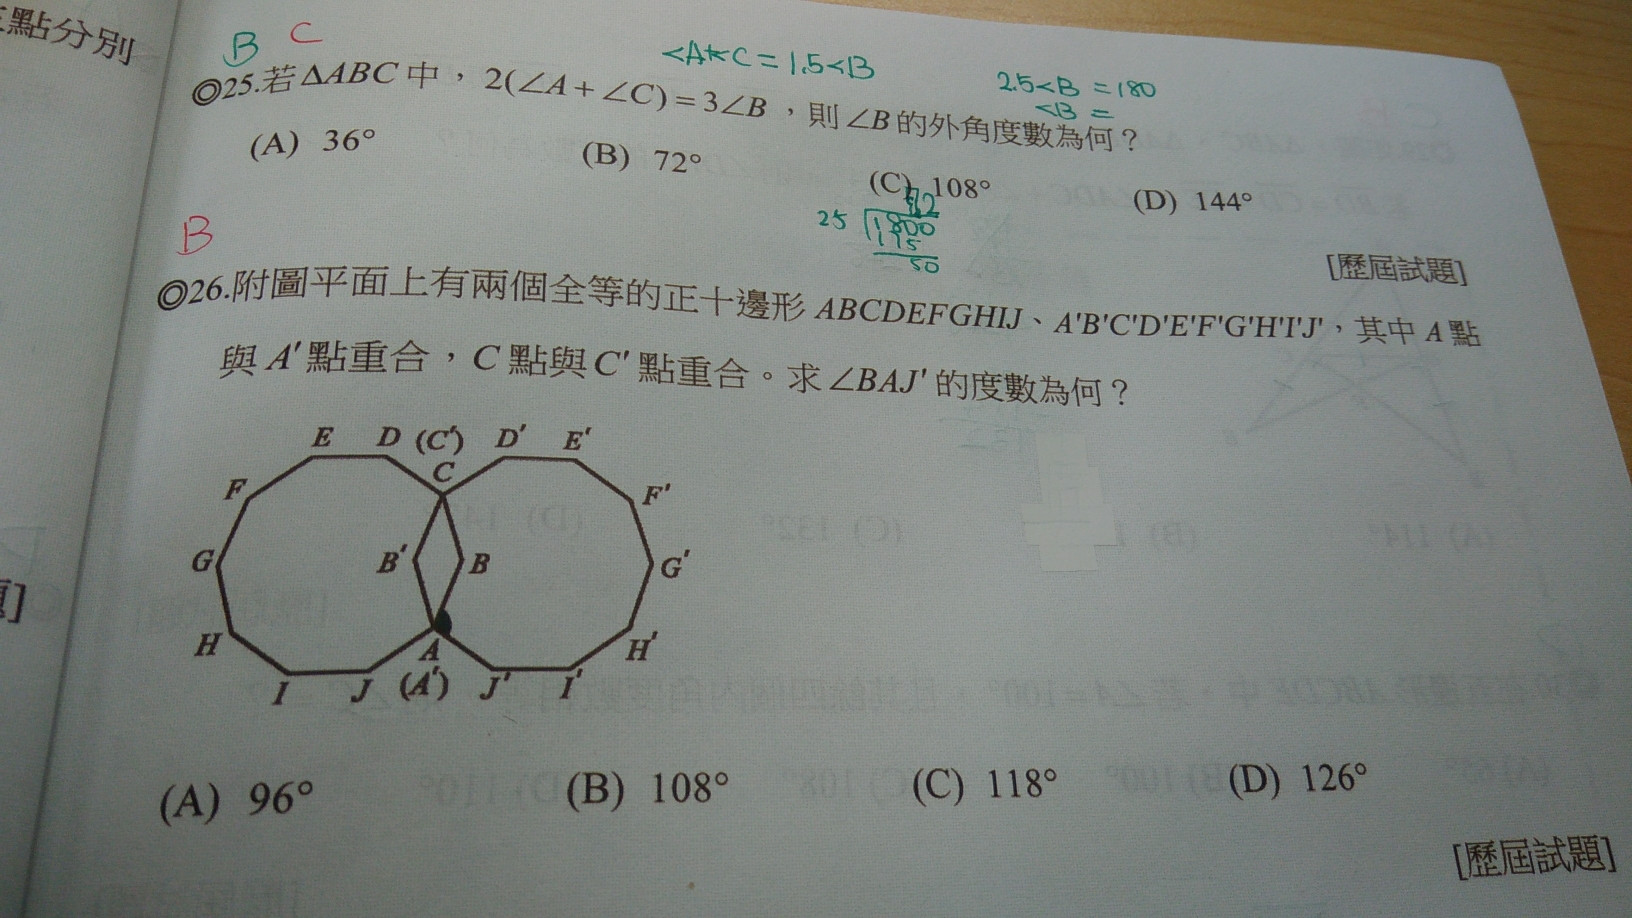 三點分別
B C
<A+C = 1.5<B
2.5<B = 180
<B =
◎25.若ΔABC中，2(∠A+∠C)=3∠B，則∠B的外角度數為何？
(A) 36° (B) 72° (C) 108° (D) 144°
72
25 1800
175
50
[歷屆試題]
B
◎26.附圖平面上有兩個全等的正十邊形ABCDEFGHIJ、A'B'C'D'E'F'G'H'I'J'，其中A點
與A'點重合，C點與C'點重合。求∠BAJ'的度數為何？
E D (C') D' E'
C
F F'
G B' B G'
H A H'
I J (A') J' I'
(A) 96° (B) 108° (C) 118° (D) 126°
[歷屆試題]
題]